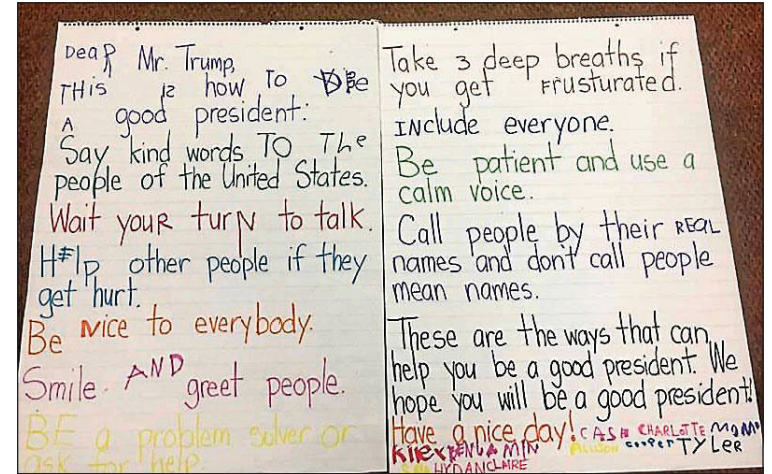 Dear Mr. Trump,
THis is how To Be
A good president:
Say kind words TO The
people of the United States.
Wait youR turN to talk.
HElp other people if they
get hurt.
Be Nice to everybody.
Smile. AND greet people.
BE a problem solver or
ask for help
Take 3 deep breaths if
you get FRusturated.
INclude everyone.
Be patient and use a
calm voice.
Call people by their REaL
names and dont call people
mean names.
These are the ways that can
help you be a good president. We
hope you will be a good president!
Have a nice day! CASH CHARLOTTE
BENJAMIN ALLISON cooper TYLeR
CLAIRE